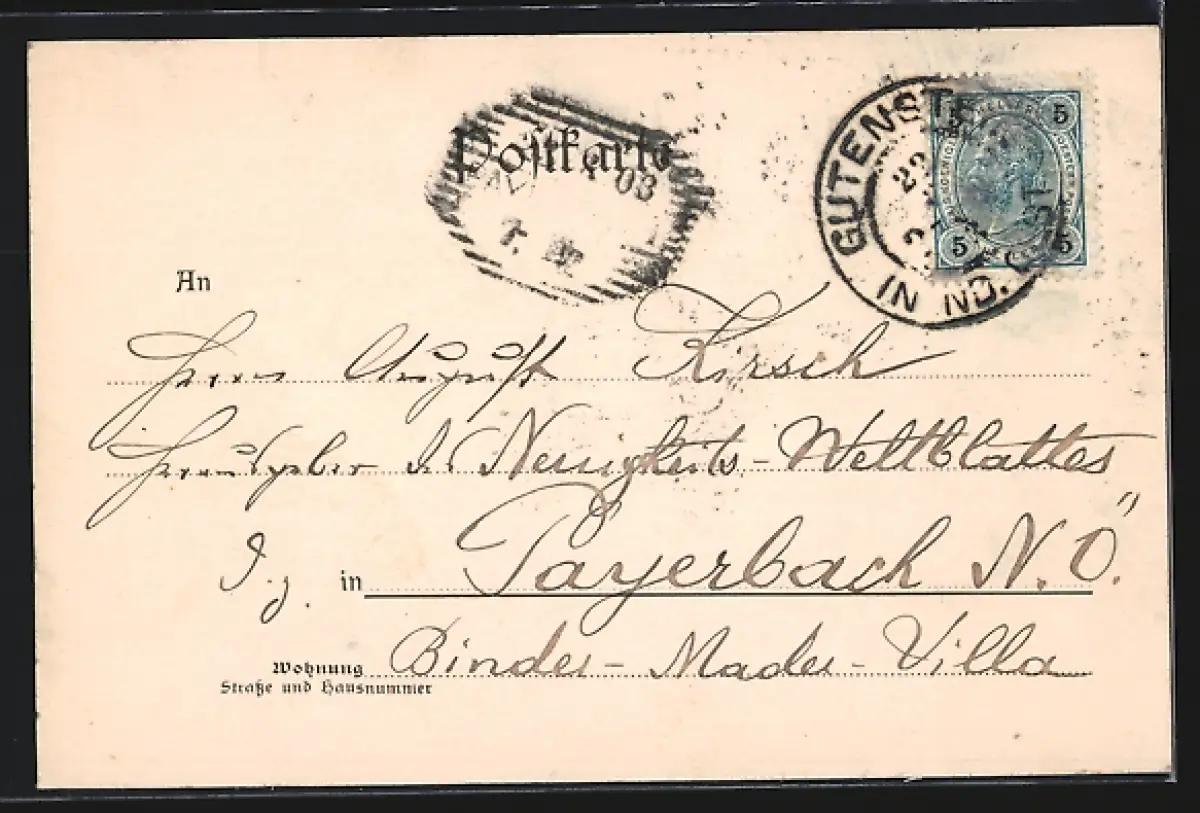 Postkarte
03
7.
GUTENSTEIN
IN ND. ÖST
22
5 5
5 5
An
Herrn August Kirsch
Herausgeber des Neuigkeits-Weltblattes
in Payerbach N.Ö.
Wohnung Binder-Mader-Villa
Straße und Hausnummer